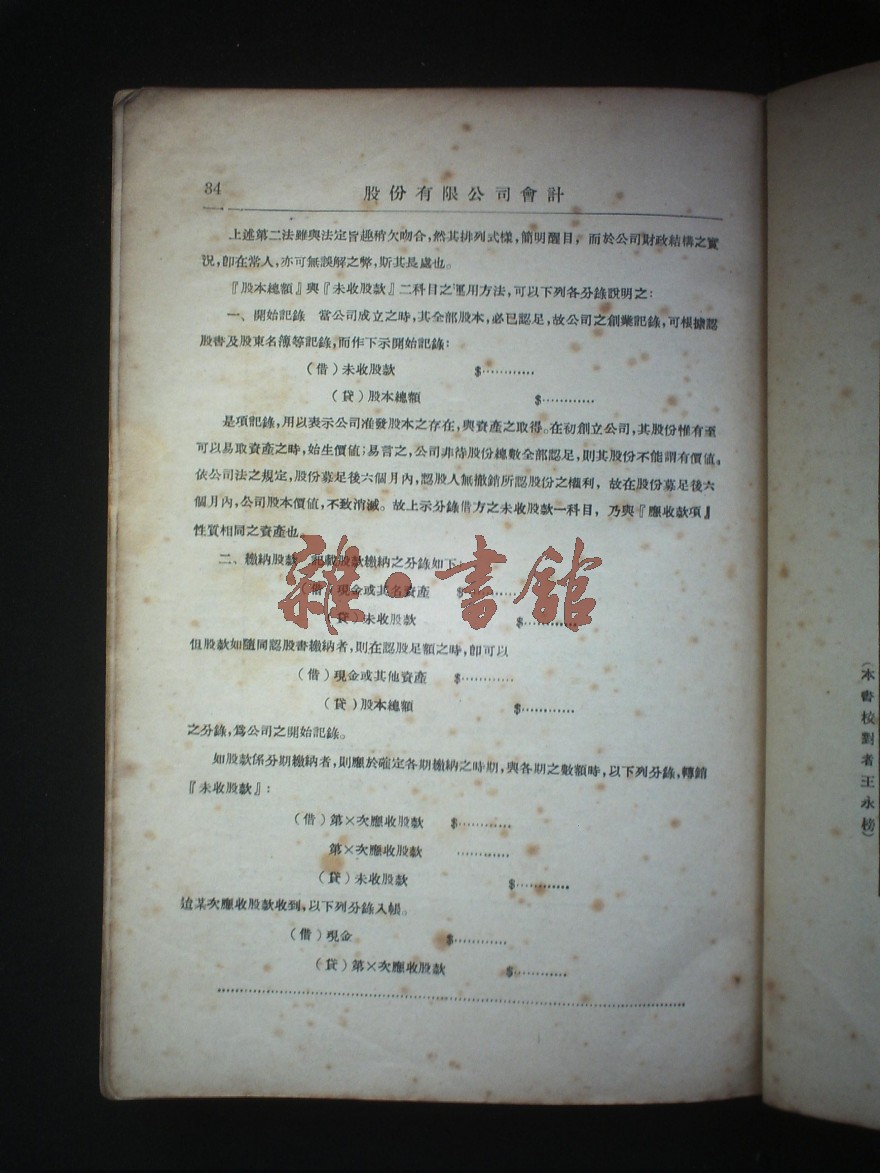 34
股份有限公司會計
上述第二法雖與法定旨趣稍欠吻合，然其排列式樣，簡明醒目，而於公司財政結構之實
況，卽在常人，亦可無誤解之弊，斯其長處也。
『股本總額』與『未收股款』二科目之運用方法，可以下列各分錄說明之：
一、開始記錄　當公司成立之時，其全部股本，必已認足，故公司之創業記錄，可根據認
股書及股東名簿等記錄，而作下示開始記錄：
（借）未收股款　$…………
（貸）股本總額　$…………
是項記錄，用以表示公司准發股本之存在，與資產之取得。在初創立公司，其股份惟有至
可以易取資產之時，始生價値；易言之，公司非待股份總數全部認足，則其股份不能謂有價値。
依公司法之規定，股份募足後六個月內，認股人無撤銷所認股份之權利，故在股份募足後六
個月內，公司股本價値，不致消滅。故上示分錄借方之未收股款一科目，乃與『應收款項』
性質相同之資產也
二、繳納股款　記載股款繳納之分錄如下：
（借）現金或其名資產　$…………
（貸）未收股款　$…………
但股款如隨同認股書繳納者，則在認股足額之時，卽可以
（借）現金或其他資產　$…………
（貸）股本總額　$…………
之分錄，爲公司之開始記錄。
如股款係分期繳納者，則應於確定各期繳納之時期，與各期之數額時，以下列分錄，轉銷
『未收股款』：
（借）第×次應收股款　$…………
第×次應收股款　…………
（貸）未收股款　$…………
迨某次應收股款收到，以下列分錄入帳。
（借）現金　$…………
（貸）第×次應收股款　$…………
雜·書館
（本書校對者王永榜）